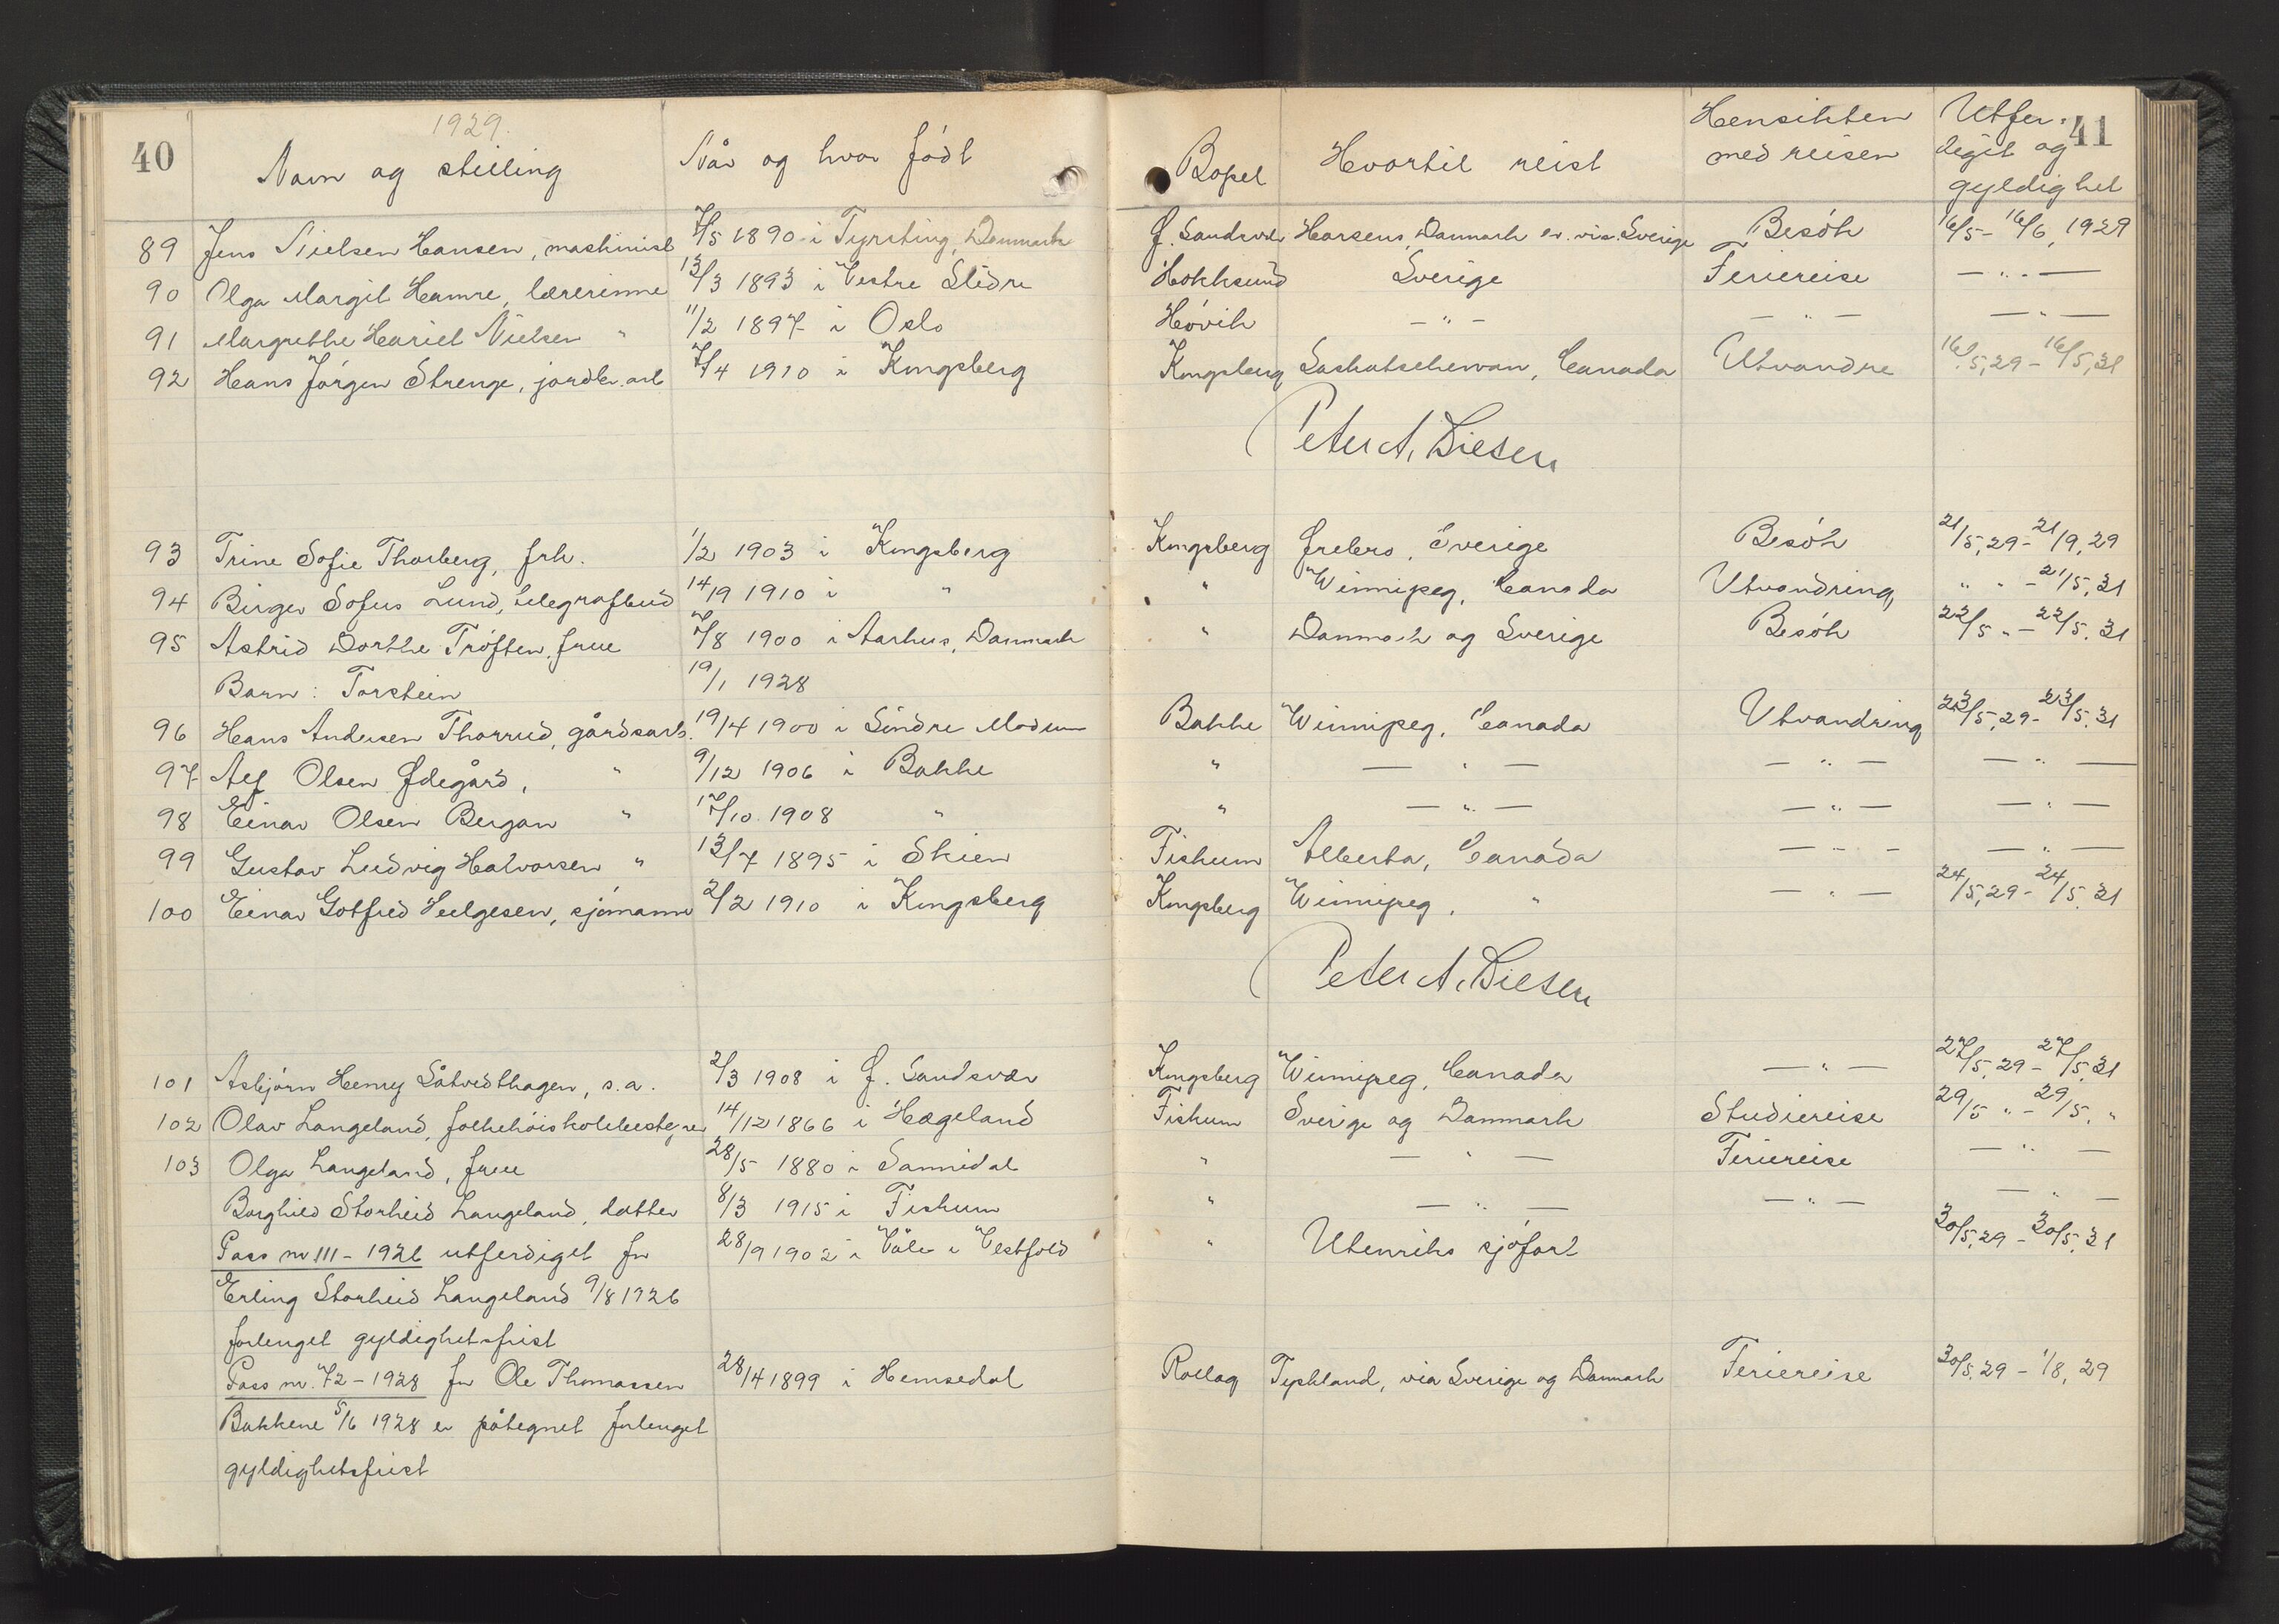 40
1929.
Navn og stilling
Når og hvor født
Bopel
Hvortil reist
Hensikten
med reisen
Utfer-
diget og
gyldighet
41
89 Jens Nielsen Hansen, maskinist 7/5 1890 i Tyrsting, Danmark Ø. Sandsvær Horsens, Danmark ev. via Sverige Besøk 16/5 - 16/6, 1929
90 Olga Margit Hamre, lærerinne 13/3 1893 i Vestre Slidre Hokksund Sverige Feriereise — " —
91 Margrethe Nielsen " 11/2 1897 i Oslo Høvik — " — — " — — " —
92 Hans Jørgen Strenge, jordbr. arb 7/4 1910 i Kongsberg Kongsberg Saskatschewan, Canada Utvandre 16/5, 29 - 16/5, 31
Peter A. Diesen
93 Trine Sofie Thorberg, frk. 1/2 1903 i Kongsberg Kongsberg Ørebro, Sverige Besøk 21/5, 29 - 21/9, 29
94 Birger Sofus Lund, telegrafbud 14/9 1910 i " " Winnipeg, Canada Utvandring " " - 21/5, 31
95 Astrid Dorthe Trøften, frue 7/8 1900 i Aarhus, Danmark " Danmark og Sverige Besøk 22/5 " - 22/5, 31
Barn: Torstein 19/1 1928
96 Hans Andersen Thorrud, gårdsarb. 19/4 1900 i Søndre Modum Bakke Winnipeg, Canada Utvandring 23/5, 29 - 23/5, 31
97 Alf Olsen Ødegård, " 9/12 1906 i Bakke " — " — — " — — " —
98 Einar Olsen Bergan " 17/10 1908 " " — " — — " — — " —
99 Gustav Ludvig Halvorsen " 13/7 1895 i Skien Fiskum Alberta, Canada — " — — " —
100 Einar Gotfred Helgesen, sjømann 2/2 1910 i Kongsberg Kongsberg Winnipeg, " — " — 24/5, 29 - 24/5, 31
Peter A. Diesen
101 Asbjørn Henry Såtvedthagen, s.a. 2/3 1908 i Ø. Sandsvær Kongsberg Winnipeg, Canada — " — 27/5, 29 - 27/5, 31
102 Olav Langeland, folkehøiskolebestyrer 14/12 1866 i Hægeland Fiskum Sverige og Danmark Studiereise 29/5 " - 29/5, "
103 Olga Langeland, frue 28/5 1880 i Sannidal " — " — Feriereise — " —
Borghild Storheid Langeland, datter 8/3 1915 i Fiskum " — " — — " — — " —
Pass nr 111 - 1926 utferdiget for 28/9 1902 i Våle i Vestfold " Utenriks sjøfart 30/5, 29 - 30/5, 31
Erling Storheid Langeland 9/8 1926
forlenget gyldighetsfrist
Pass nr. 72 - 1928 for Ole Thomassen 28/4 1899 i Hemsedal Rollag Tyskland, via Sverige og Danmark Feriereise 30/5, 29 - 1/8, 29
Bakkene 5/6 1928 er påtegnet forlenget
gyldighetsfrist